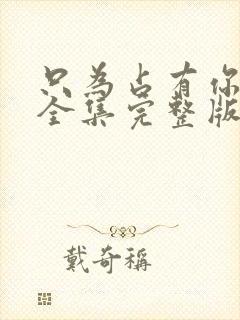 只為占有你
全集完整版
戴奇稱